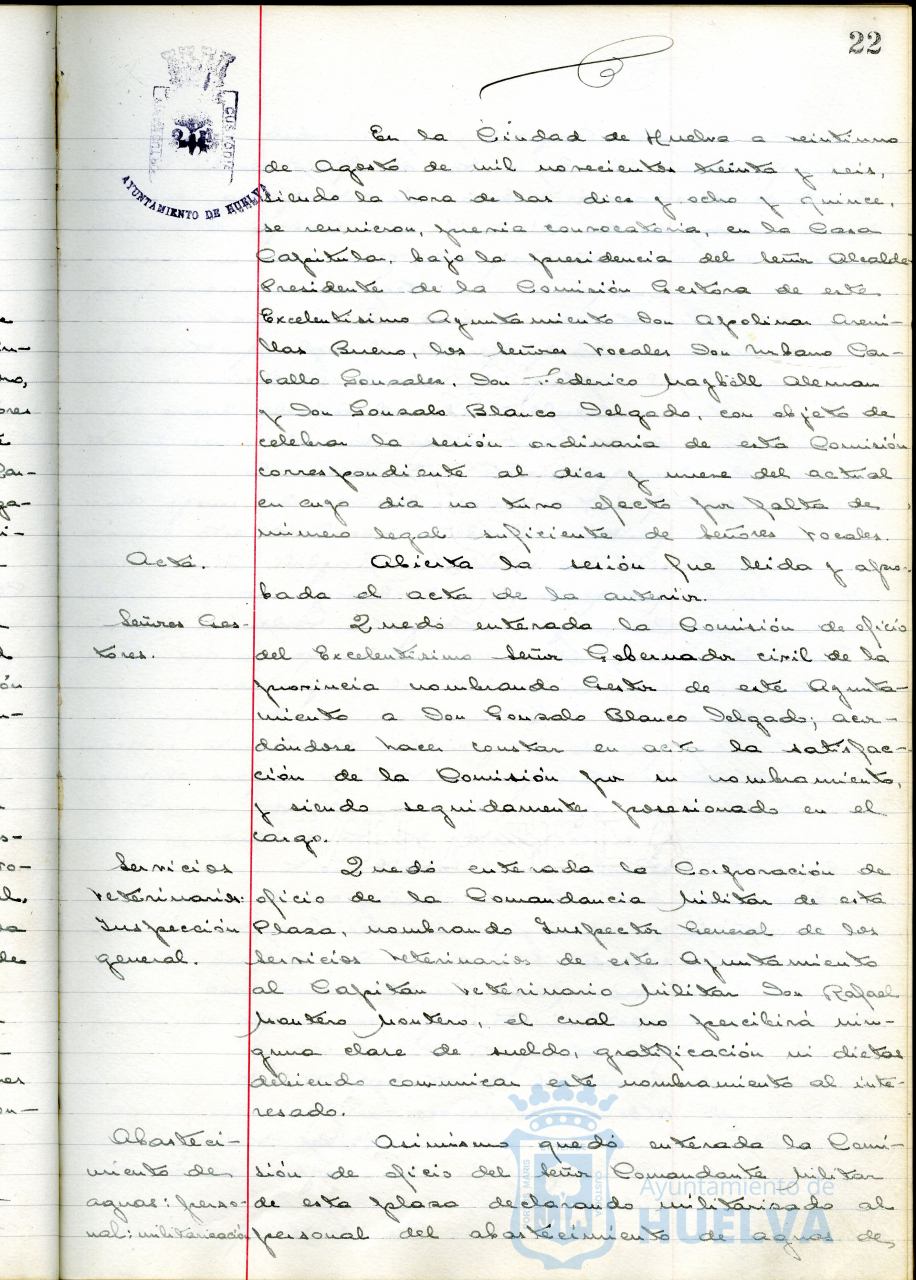 22
AYUNTAMIENTO DE HUELVA
En la Ciudad de Huelva a veintiuno
de Agosto de mil novecientos treinta y seis,
siendo la hora de las diez y ocho y quince,
se reunieron, previa convocatoria, en la Casa
Capitular, bajo la presidencia del Señor Alcalde
Presidente de la Comisión Gestora de este
Excelentísimo Ayuntamiento Don Apolinar Areni-
llas Bueno, los Señores Vocales Don Urbano Car-
ballo Gonzalez, Don Federico Alemam
y Don Gonzalo Blanco Delgado, con objeto de
celebrar la sesión ordinaria de esta Comisión
correspondiente al diez y nueve del actual
en cuyo día no tuvo efecto por falta de
número legal suficiente de Señores Vocales.
Acta.
Abierta la sesión fue leida y apro-
bada el acta de la anterior.
Señores Ges-
tores.
Quedó enterada la Comisión de oficio
del Excelentísimo Señor Gobernador civil de la
provincia nombrando Gestor de este Ayunta-
miento a Don Gonzalo Blanco Delgado; acor-
dándose hacer constar en acta la satisfac-
ción de la Comisión por su nombramiento,
y siendo seguidamente posesionado en el
cargo.
Servicios
veterinarios:
Inspección
general.
Quedó enterada la Corporación de
oficio de la Comandancia Militar de esta
Plaza, nombrando Inspector General de los
Servicios Veterinarios de este Ayuntamiento
al Capitán Veterinario Militar Don Rafael
Montero Montero, el cual no percibirá nin-
guna clase de sueldo, gratificación ni dietas
debiendo comunicar este nombramiento al inte-
resado.
Abasteci-
miento de
aguas: perso-
nal: militarización
Asimismo quedó enterada la Comi-
sión de oficio del Señor Comandante Militar
de esta plaza declarando militarizado al
personal del abastecimiento de aguas de
Ayuntamiento de
HUELVA